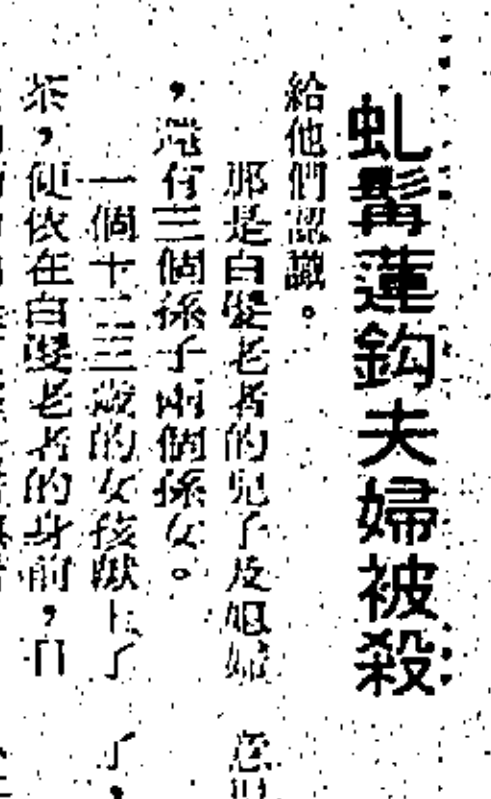 虬髯蓮鈎夫婦被殺
給他們認識。
那是白髮老者的兒子及媳婦
，還有三個孫子兩個孫女。
一個十二三歲的女孩獻上了
茶，便依在白髮老者的身前，